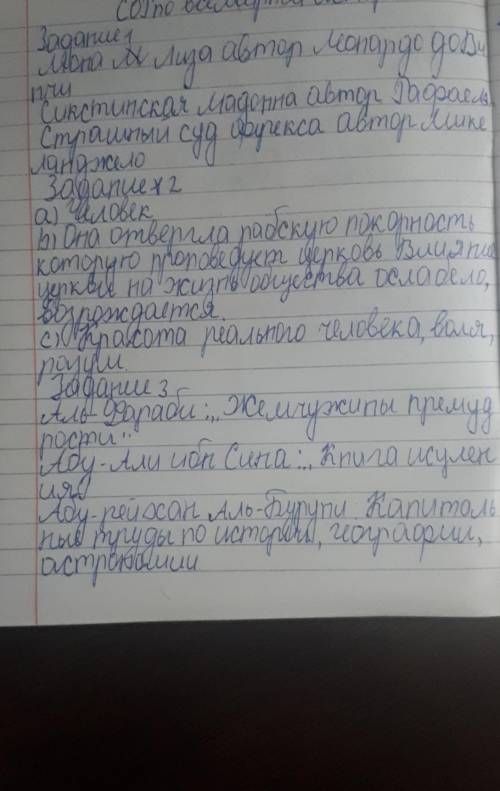 СО) по всемирной истор
Задание 1
Мона М Лиза автор Леонардо до Ви
нчи
Сикстинская мадонна автор Рафаель
Страшный суд фрекса автор Мике
ланджело
Задание № 2
а) Человек
b) Она отвергла рабскую покорность
которую проповедует церковь Влияние
церкви на жизнь общества ослабело,
возрождается.
с) Красота реального человека, воля,
разум.
Задание 3
Аль-Фараби: „Жемчужины премуд
рости"
Абу-Али ибн Сина: „Книга исцелен
ия"
Абу-рейхан Аль-Бируни Капиталь
ные труды по истории, географии,
астрономии